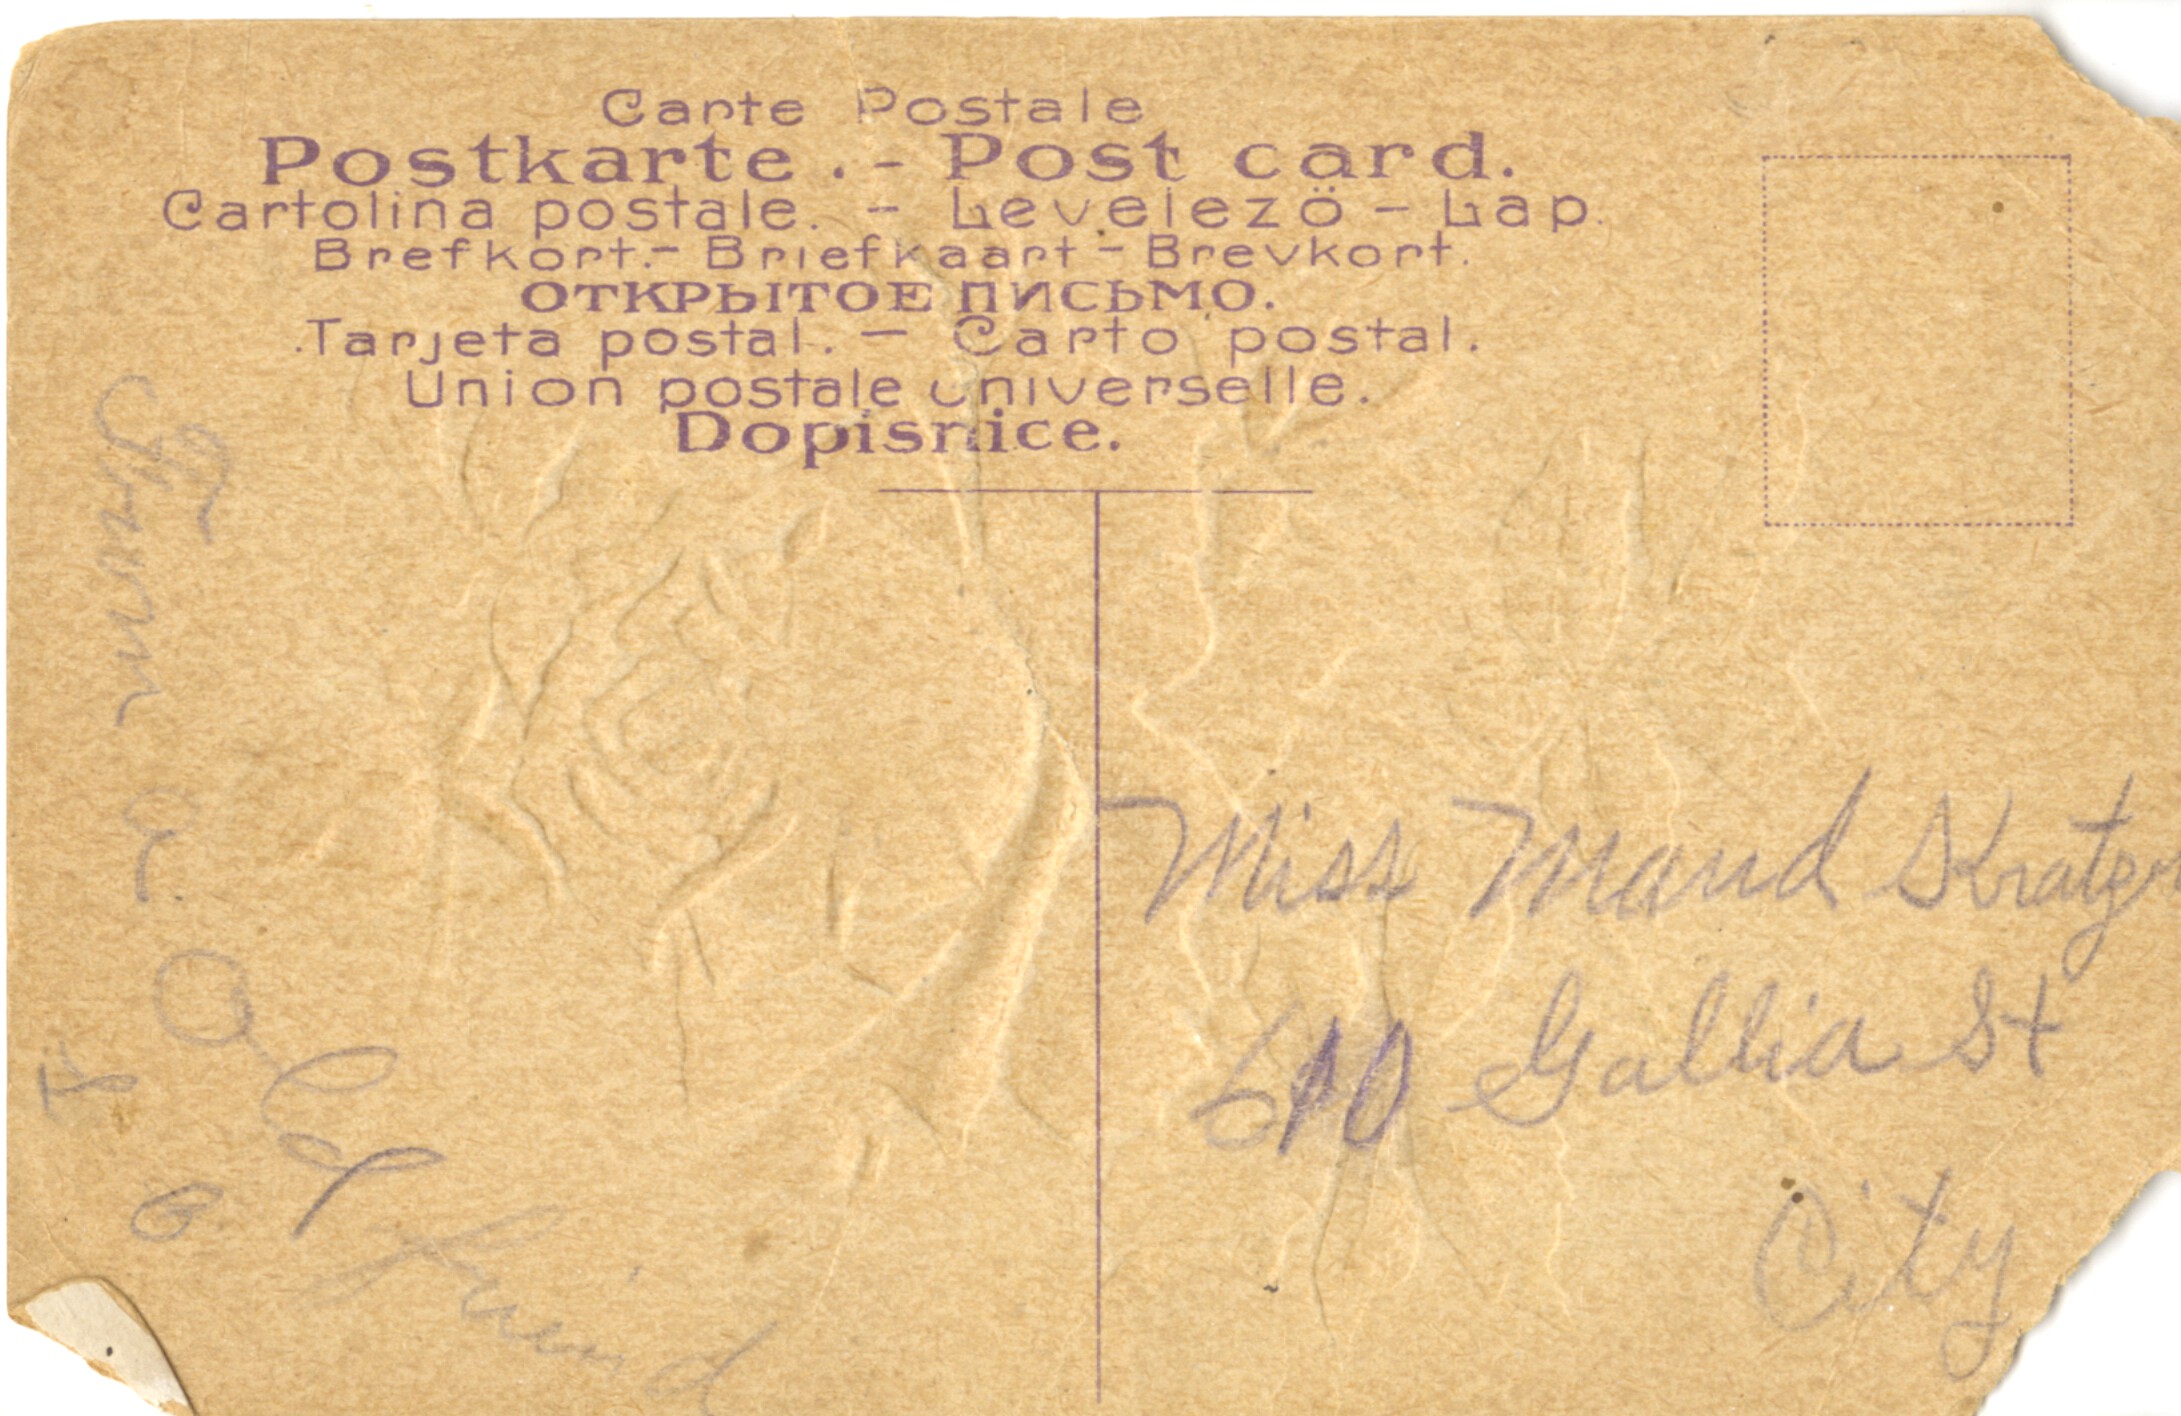 Carte Postale
Postkarte . - Post card.
Cartolina postale. - Levelezö - Lap.
Brefkort. - Briefkaart - Brevkort.
ОТКРЫТОЕ ПИСЬМО.
Tarjeta postal. - Carto postal.
Union postale universelle.
Dopisnice.
From
a
Old
friend
Miss Maud
610 Gallia St
City